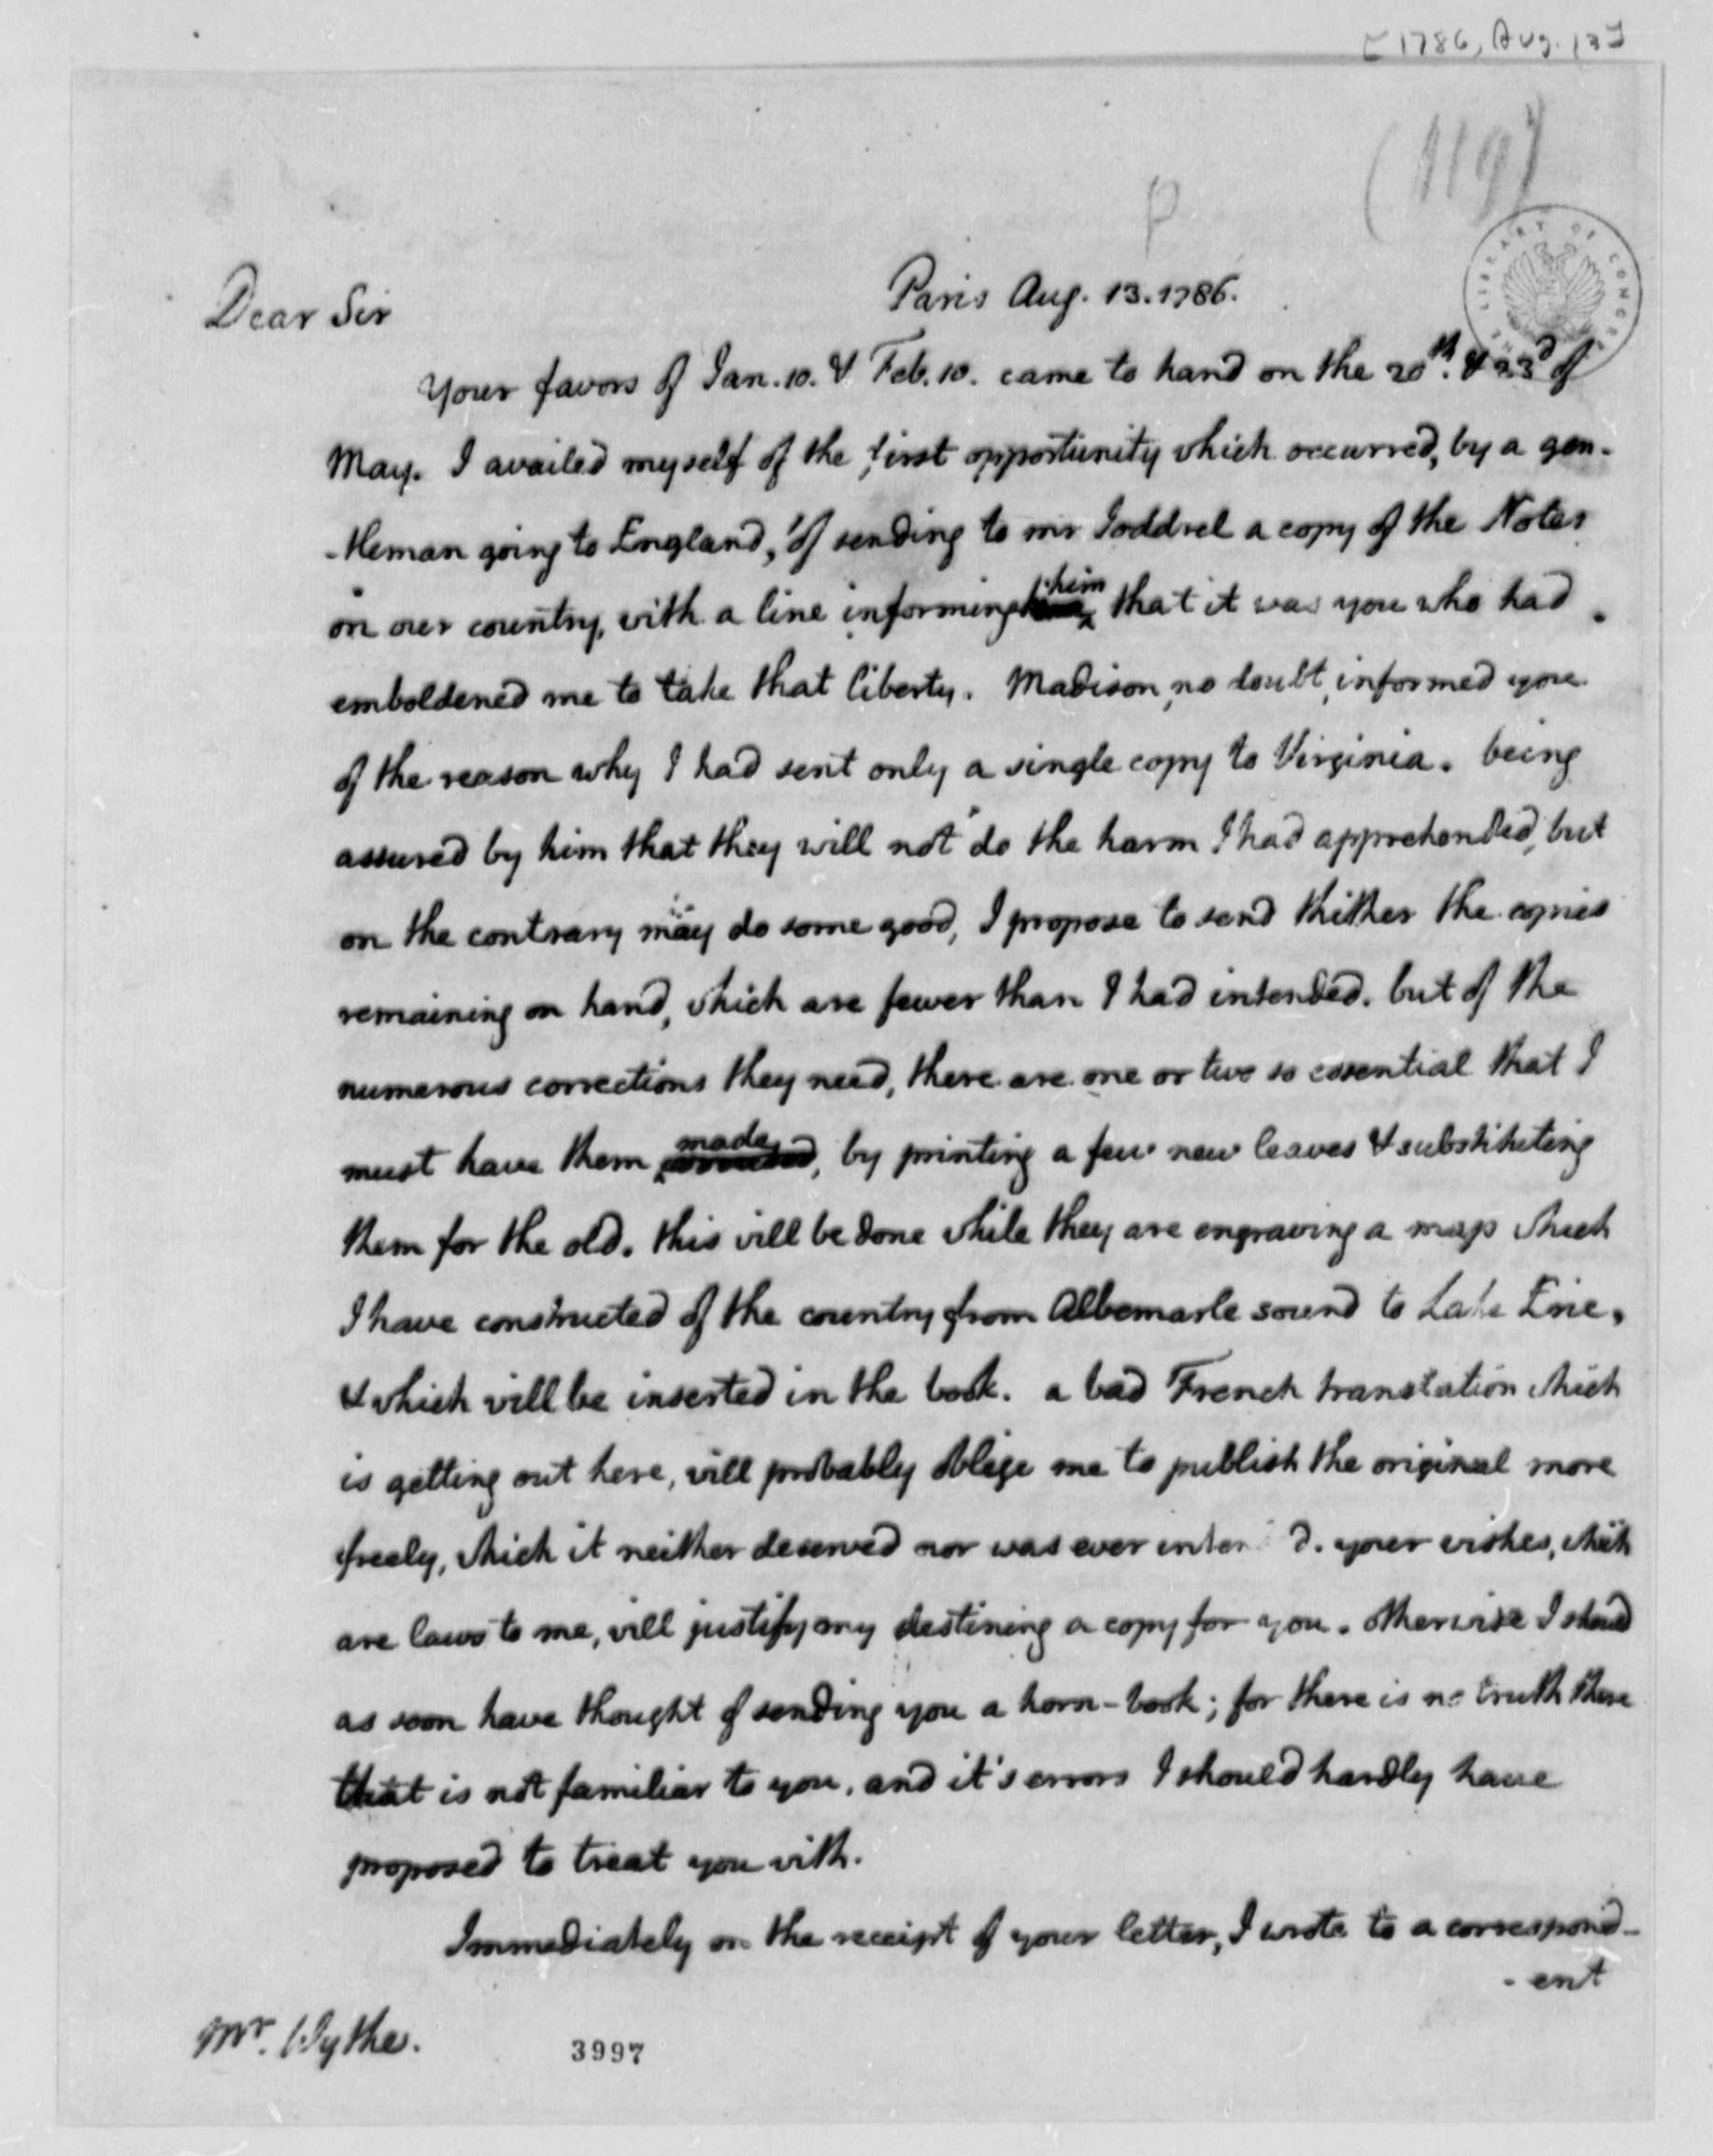 [1786, Aug. 13]
(119)
P
LIBRARY OF CONGRESS
Paris Aug. 13. 1786.
Dear Sir
Your favors of Jan. 10. & Feb. 10. came to hand on the 20th. & 23d of
May. I availed myself of the first opportunity which occurred, by a gen-
-tleman going to England, of sending to mr Joddrel a copy of the Notes
on our country, with a line informing him that it was you who had
emboldened me to take that liberty. Madison, no doubt, informed you
of the reason why I had sent only a single copy to Virginia. being
assured by him that they will not do the harm I had apprehended, but
on the contrary may do some good, I propose to send thither the copies
remaining on hand, which are fewer than I had intended. but of the
numerous corrections they need, there are one or two so essential that I
must have them made, by printing a few new leaves & substituting
them for the old. this will be done while they are engraving a map which
I have constructed of the country from Albemarle sound to Lake Erie,
& which will be inserted in the book. a bad French translation which
is getting out here, will probably oblige me to publish the original more
freely, which it neither deserved nor was ever inten d. your wishes, which
are laws to me, will justify my destining a copy for you. otherwise I should
as soon have thought of sending you a horn-book; for there is no truth there
that is not familiar to you, and it's errors I should hardly have
proposed to treat you with.
Immediately on the receipt of your letter, I wrote to a correspond-
-ent
Mr. Wythe.
3997